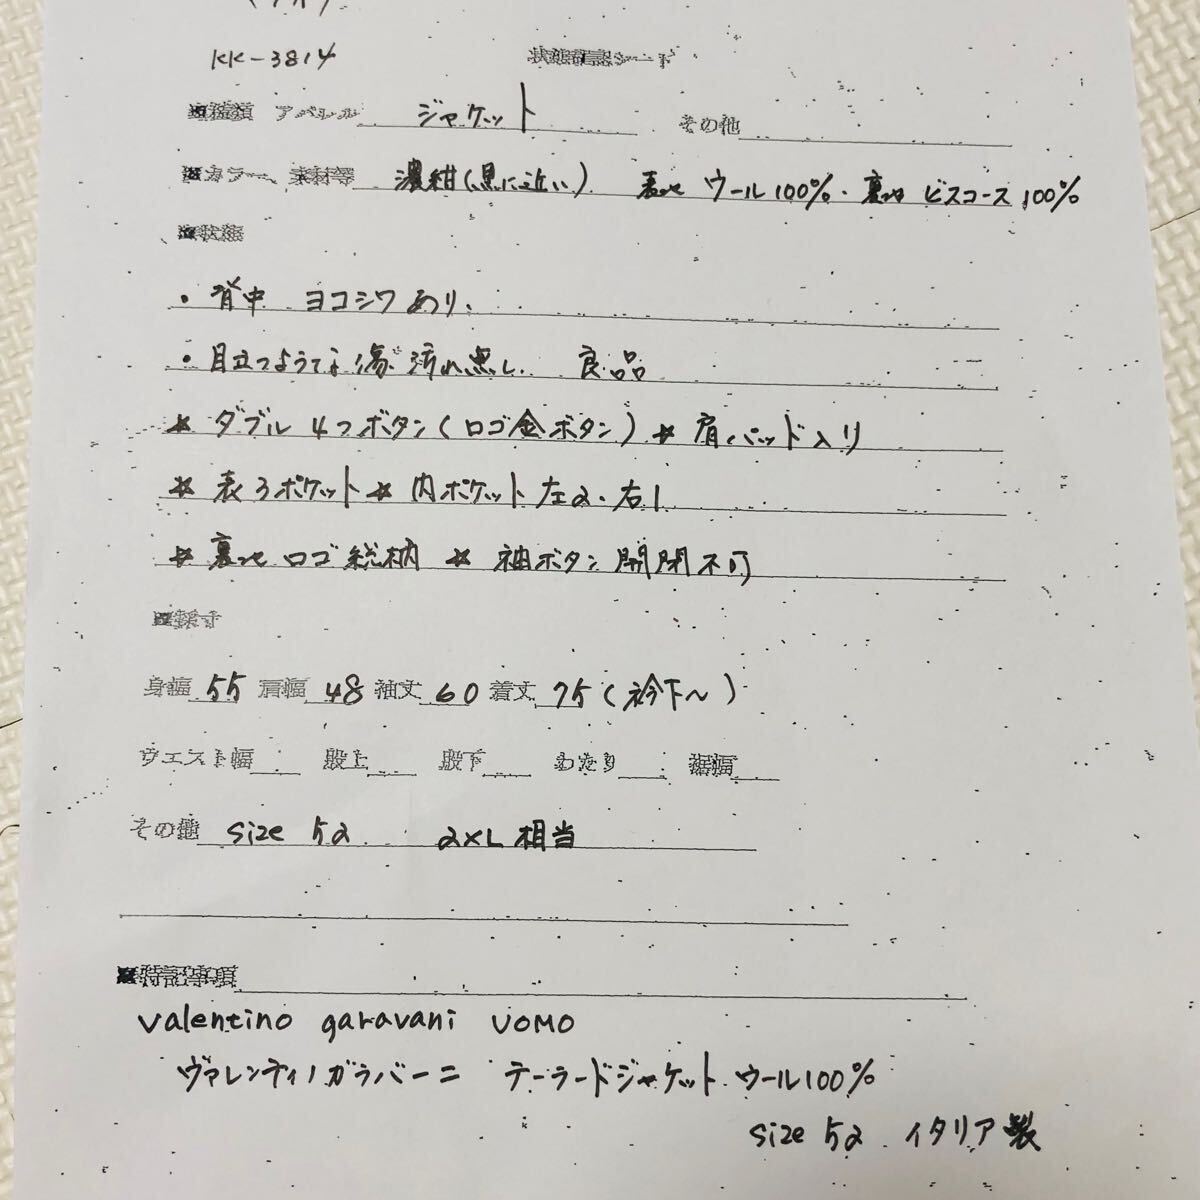 KK-3814 状態確認シート
※種類 アパレル ジャケット その他
※カラー、素材等 濃紺(黒に近い) 表地 ウール100%・裏地 ビスコース100%
※状態
・背中 ヨコシワあり、
・目立つような傷、汚れ無し、 良品
★ダブル4つボタン(ロゴ金ボタン)★肩パッド入り
★表3ポケット★内ポケット左2、右1
★裏地ロゴ総柄 ★袖ボタン開閉不可
※採寸
身幅 55 肩幅 48 袖丈 60 着丈 75(衿下〜)
ウエスト幅 股上 股下 わたり 裾幅
その他 size 52 2XL相当
※特記事項
valentino garavani UOMO
ヴァレンティノガラバーニ テーラードジャケット ウール100%
size 52 イタリア製